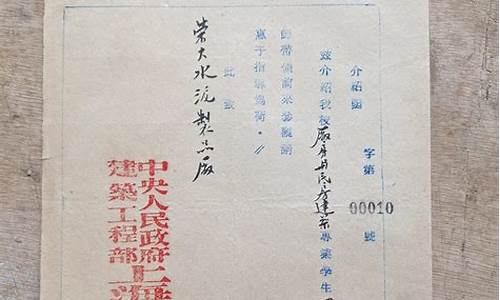 介紹函 字第 00010 號
茲介紹我校廠房与民房建築專業學生
師帶領前來參觀請
惠予指導為荷。
此致
榮大水泥製品廠
中央人民政府
建築工程部